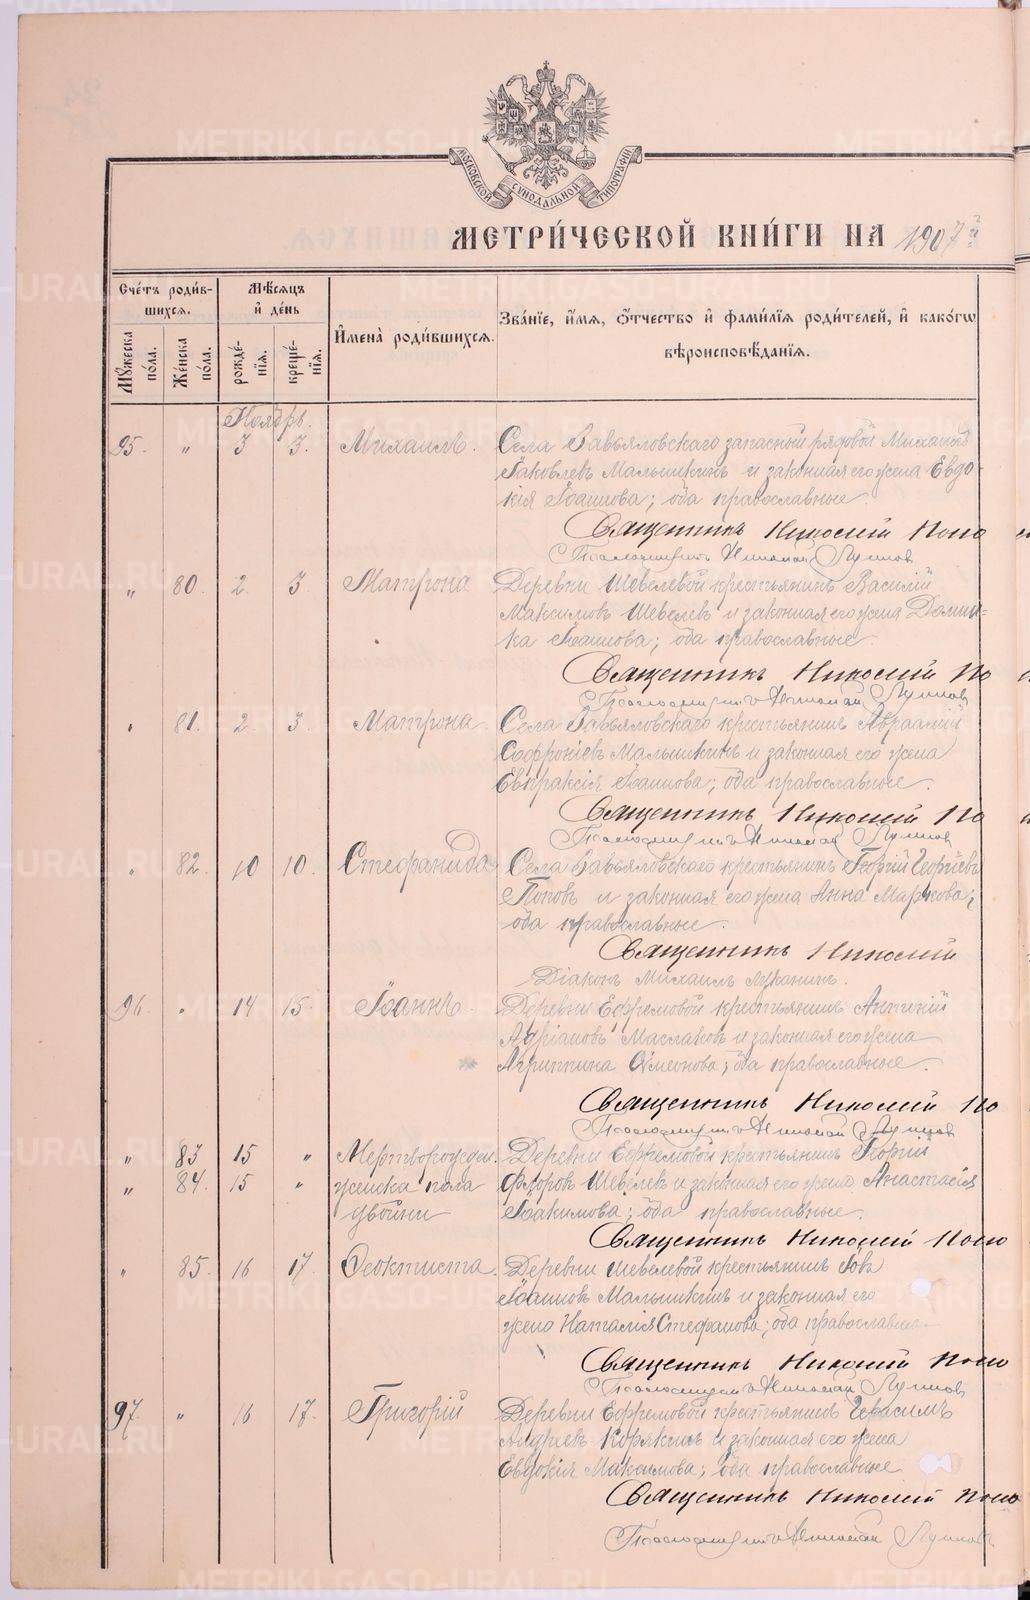 МОСКОВСКОЙ СѴНОДАЛЬНОЙ ТИПОГРАФІИ
МЕТРИ́ЧЕСКОЙ КНИ́ГИ НА 1907 й
Сче́тъ роди́в-
шихся.
Мꙋ́жеска по́ла.
Же́нска по́ла.
Мѣ́сяцъ
и҆ де́нь
рожде́-нїѧ.
креще́-нїѧ.
И҆мена̀ роди́вшихсѧ.
Зва́нїе, и҆́мѧ, ѻ҆́тчество и҆ фами́лїѧ роди́телей, и҆ како́гѡ
вѣроисповѣ́данїѧ.
Ноябрь.
95. " 3 3. Михаилъ. Села Завьяловскаго запасной рядовой Михаилъ
Іаковлевъ Малышкинъ и законная его жена Евдо-
кія Іоаннова; оба православные
Священникъ Николай Попо
Псаломщикъ Николай Лупповъ
" 80. 2. 3 Матрона Деревни Шевелевой крестьянинъ Василій
Максимовъ Шевелевъ и законная его жена Домни-
ка Іоаннова; оба православные
Священникъ Николай По
Псаломщикъ Николай Лупповъ
" 81. 2 3. Матрона. Села Завьяловскаго крестьянинъ Авраамій
Софроніевъ Малышкинъ и законная его жена
Евпраксія Іоаннова; оба православные.
Священникъ Николай По
Псаломщикъ Николай Лупповъ
" 82. 10 10. Стефанида Села Завьяловскаго крестьянинъ Георгій Георгіевъ
Поповъ и законная его жена Анна Маркова;
оба православные
Священникъ Николай
Діаконъ Михаилъ
96. " 14 15. Іоаннъ. Деревни Ефремовой крестьянинъ Антоній
Адріановъ Маслаковъ и законная его жена
Агриппина Симеонова; оба православные.
Священникъ Николай По
Псаломщикъ Николай Лупповъ
" 83 15 " Мертворожден. Деревни Ефремовой крестьянинъ Георгій
" 84. 15 " женска пола Флоровъ Шевелевъ и законная его жена Анастасія
двойни Іоакимова; оба православные.
Священникъ Николай Попо
" 85. 16 17. Ѳеоктиста. Деревни Шевелевой крестьянинъ Іовъ
Іоанновъ Малышкинъ и законная его
жена Наталія Стефанова; оба православные
Священникъ Николай Попо
Псаломщикъ Николай Лупповъ
97. " 16 17. Григорій Деревни Ефремовой крестьянинъ Герасимъ
Андреевъ Корякинъ и законная его жена
Евдокія Максимова; оба православные
Священникъ Николай Попо
Псаломщикъ Николай Лупповъ
METRIKI.GASO-URAL.RU